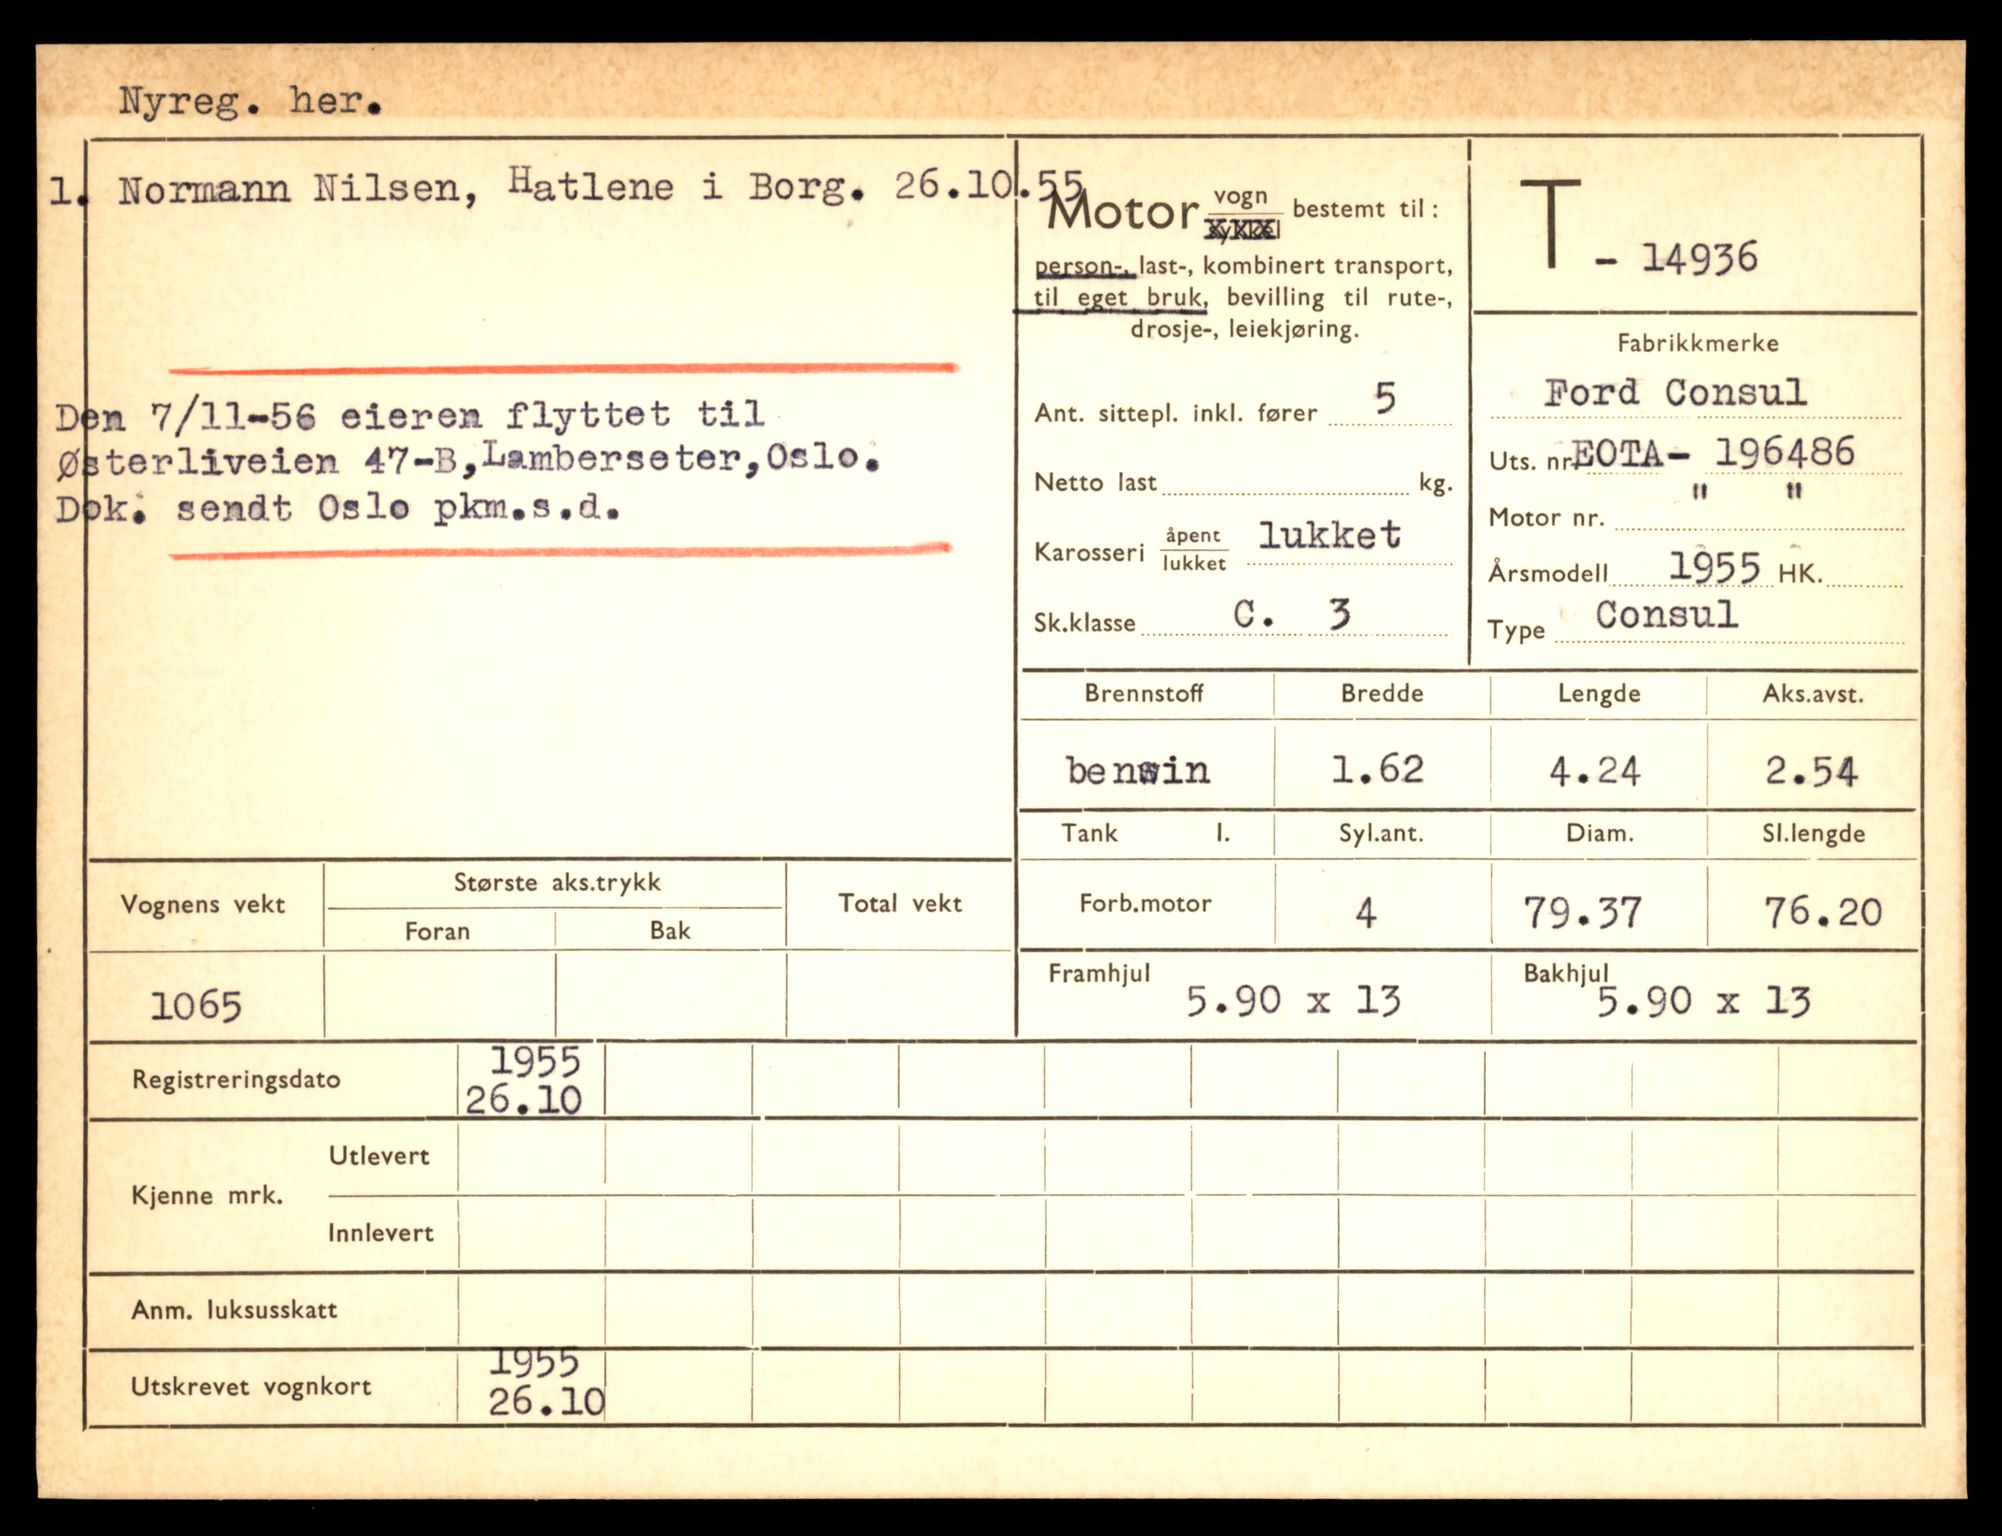 Nyreg. her.
1. Normann Nilsen, Hatlene i Borg. 26.10.55
Den 7/11-56 eieren flyttet til
Østerliveien 47-B, Lamberseter, Oslo.
Dok. sendt Oslo pkm.s.d.
Motor vogn bestemt til:
person-, last-, kombinert transport,
til eget bruk, bevilling til rute-,
drosje-, leiekjøring.
Ant. sittepl. inkl. fører 5
Netto last kg.
Karosseri åpent/lukket lukket
Sk.klasse C. 3
T - 14936
Fabrikkmerke
Ford Consul
Uts. nr. EOTA- 196486
Motor nr. " "
Årsmodell 1955 HK.
Type Consul
Brennstoff Bredde Lengde Aks.avst.
bensin 1.62 4.24 2.54
Tank l. Syl.ant. Diam. Sl.lengde
Forb.motor 4 79.37 76.20
Framhjul 5.90 x 13 Bakhjul 5.90 x 13
Vognens vekt Største aks.trykk Total vekt
Foran Bak
1065
Registreringsdato 1955
26.10
Kjenne mrk. Utlevert
Innlevert
Anm. luksusskatt
Utskrevet vognkort 1955
26.10